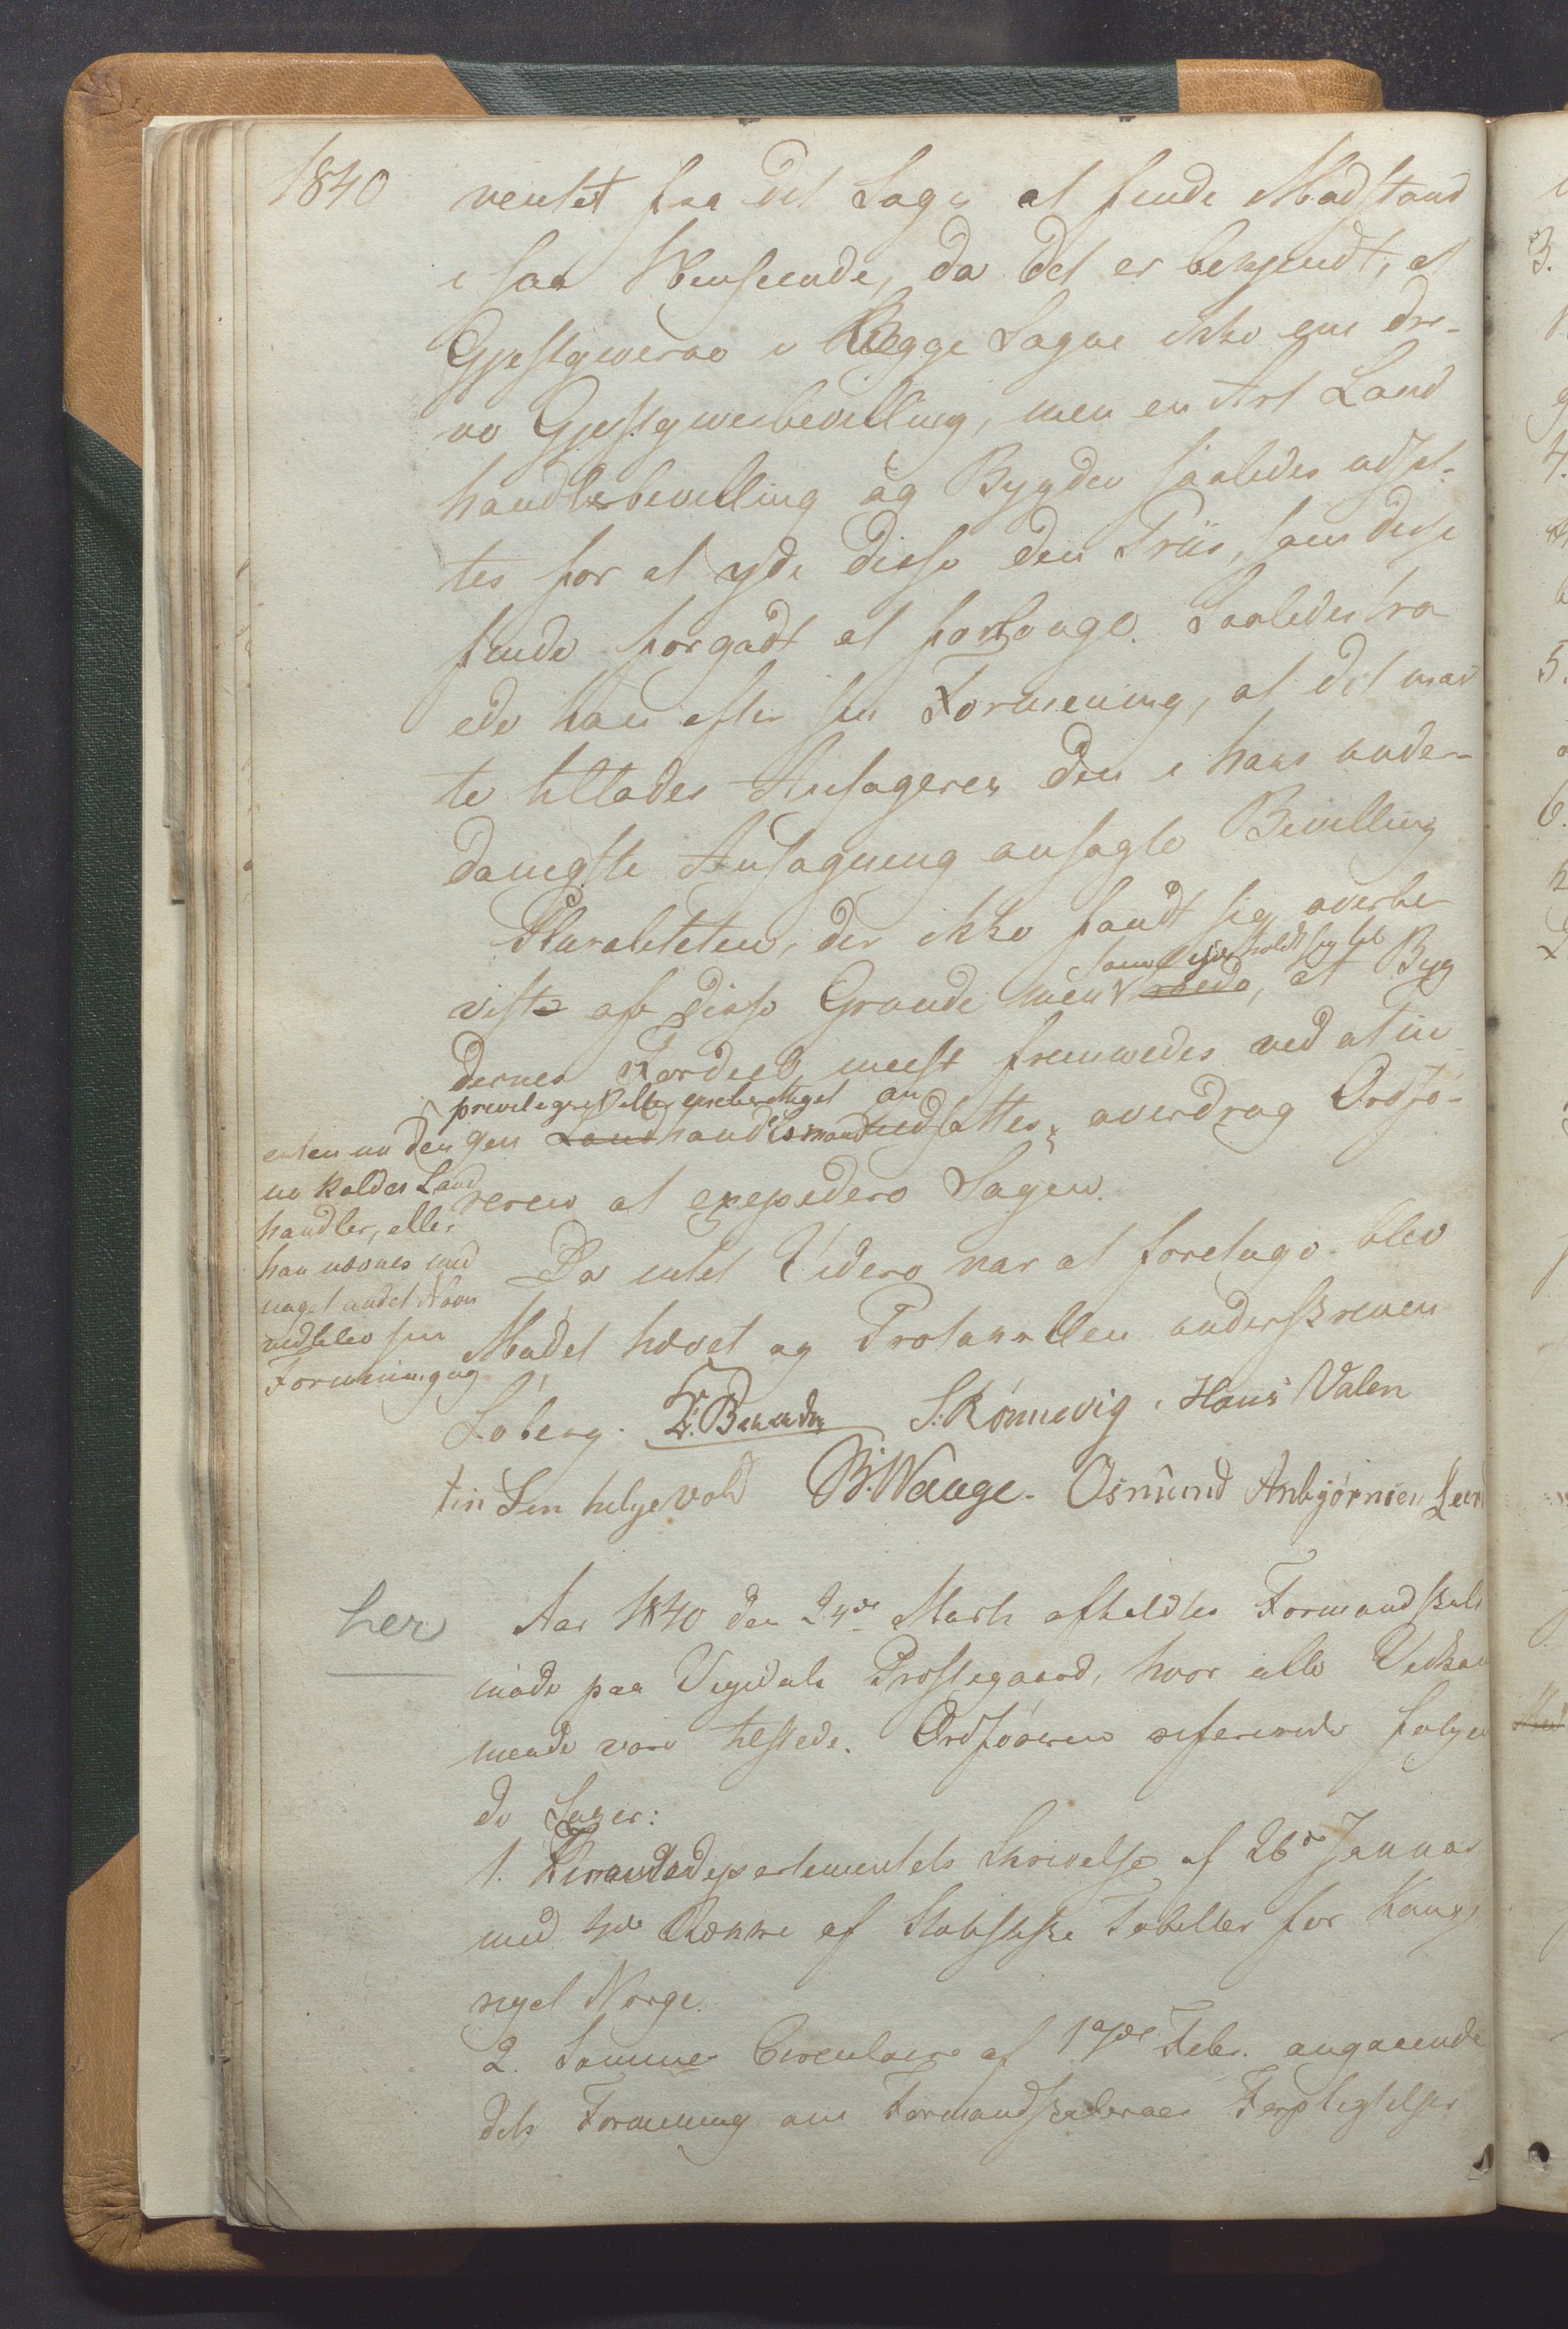 1840
ventet fra det Sogn at finde Modstand
i saa Henseende, da det er bekjendt, at
Gjestgiverne i begge Sogne ikke som dri-
ve Gjestgiverbevilling, men en Art Land
handlerbevilling og Bygden saaledes udsæt-
tes for at yde disse den Priis, som disse
finde forgodt at forlange. Saaledes tro
ede han efter sin Formening, at det maa
te tillades Ansøgeren den i hans under-
danigste Ansøgning ansøgte Bevilling
Pluraliteten, der ikke fandt sig overbe
som holdt sig til
viist af disse Grunde men troede, at Byg
dernes Fordeel meest fremmedes ved at in
privilegeret eller eneberettiget an
gen Landhandelsmand udsattes, overdrog Ordfø-
reren at expedere Sagen.
enten nu den
nu kaldes Land
handler, eller
han nævnes med
noget andet Navn
vedblev sin
Formening og
Da intet Videre var at foretage blev
Mødet hævet og Protocollen underskreven
Løberg. S. Rönnevig. Hans Valen
tin Sen helgevold B. Waage. Osmund Anbjørnsen Leer
her
Aar 1840 den 24de Marts afholdtes Formandskabs
møde paa Vigedals Præstegaard, hvor alle Vedkom
mende vare tilstede. Ordføreren refererede følgen
de Sager:
1. Finandsdepartementets Skrivelse af 26de Januar
med 4de Række af statistiske Tabeller for Konge
riget Norge.
2. Sammes Circulaire af 17de Febr. angaaende
dets Formening om Formandskabernes Forpligtelser